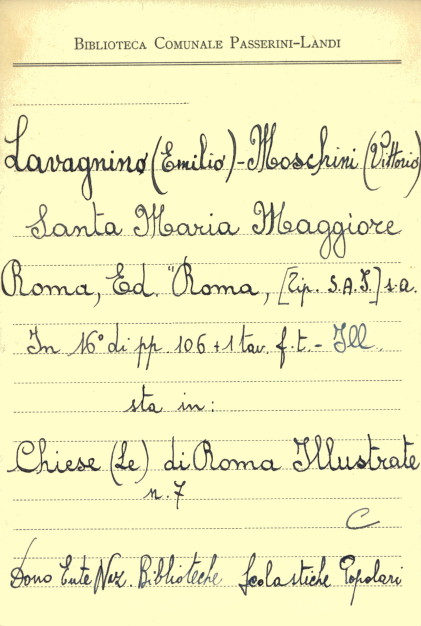 BIBLIOTECA COMUNALE PASSERINI-LANDI
Lavagnino (Emilio) - Moschini (Vittorio)
Santa Maria Maggiore
Roma, Ed. "Roma, [Tip. S.A.I.] s.a.
In 16° di pp. 106 + 1 tav. f.t. - Ill.
sta in:
Chiese (Le) di Roma Illustrate
n. 7
C
Dono Ente Naz. Biblioteche Scolastiche Popolari